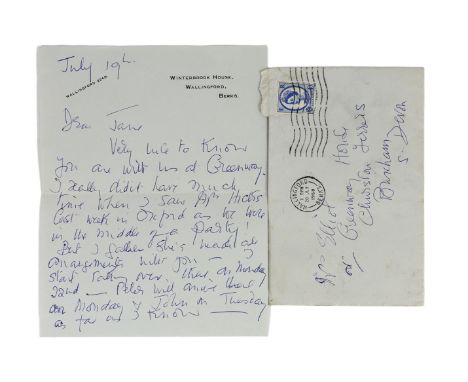 July 19th
WALLINGFORD 2248.
WINTERBROOK HOUSE,
WALLINGFORD,
BERKS.
Dear Jane
Very nice to know
you are with us at Greenway.
I really didn't have much
time when I saw Mrs
last week in Oxford as we were
in the middle of a Party!
But I gather she's made all
arrangements with you — I
start out there on Monday
22nd — Peter will arrive there
on Monday & John on Tuesday
as far as I know —
WALLINGFORD
BERKSHIRE
Mrs Elliot
Greenway House
Churston Ferrers
Brixham
S. Devon